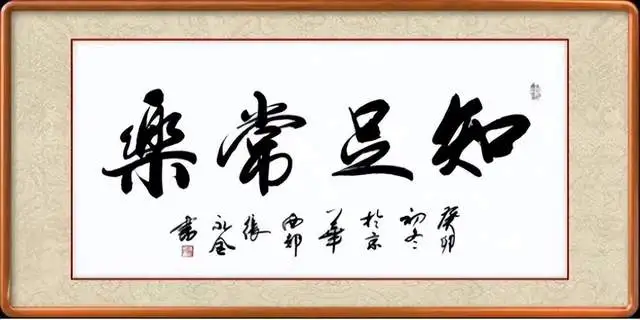 知足常樂
癸卯初冬於京華西部張永全書